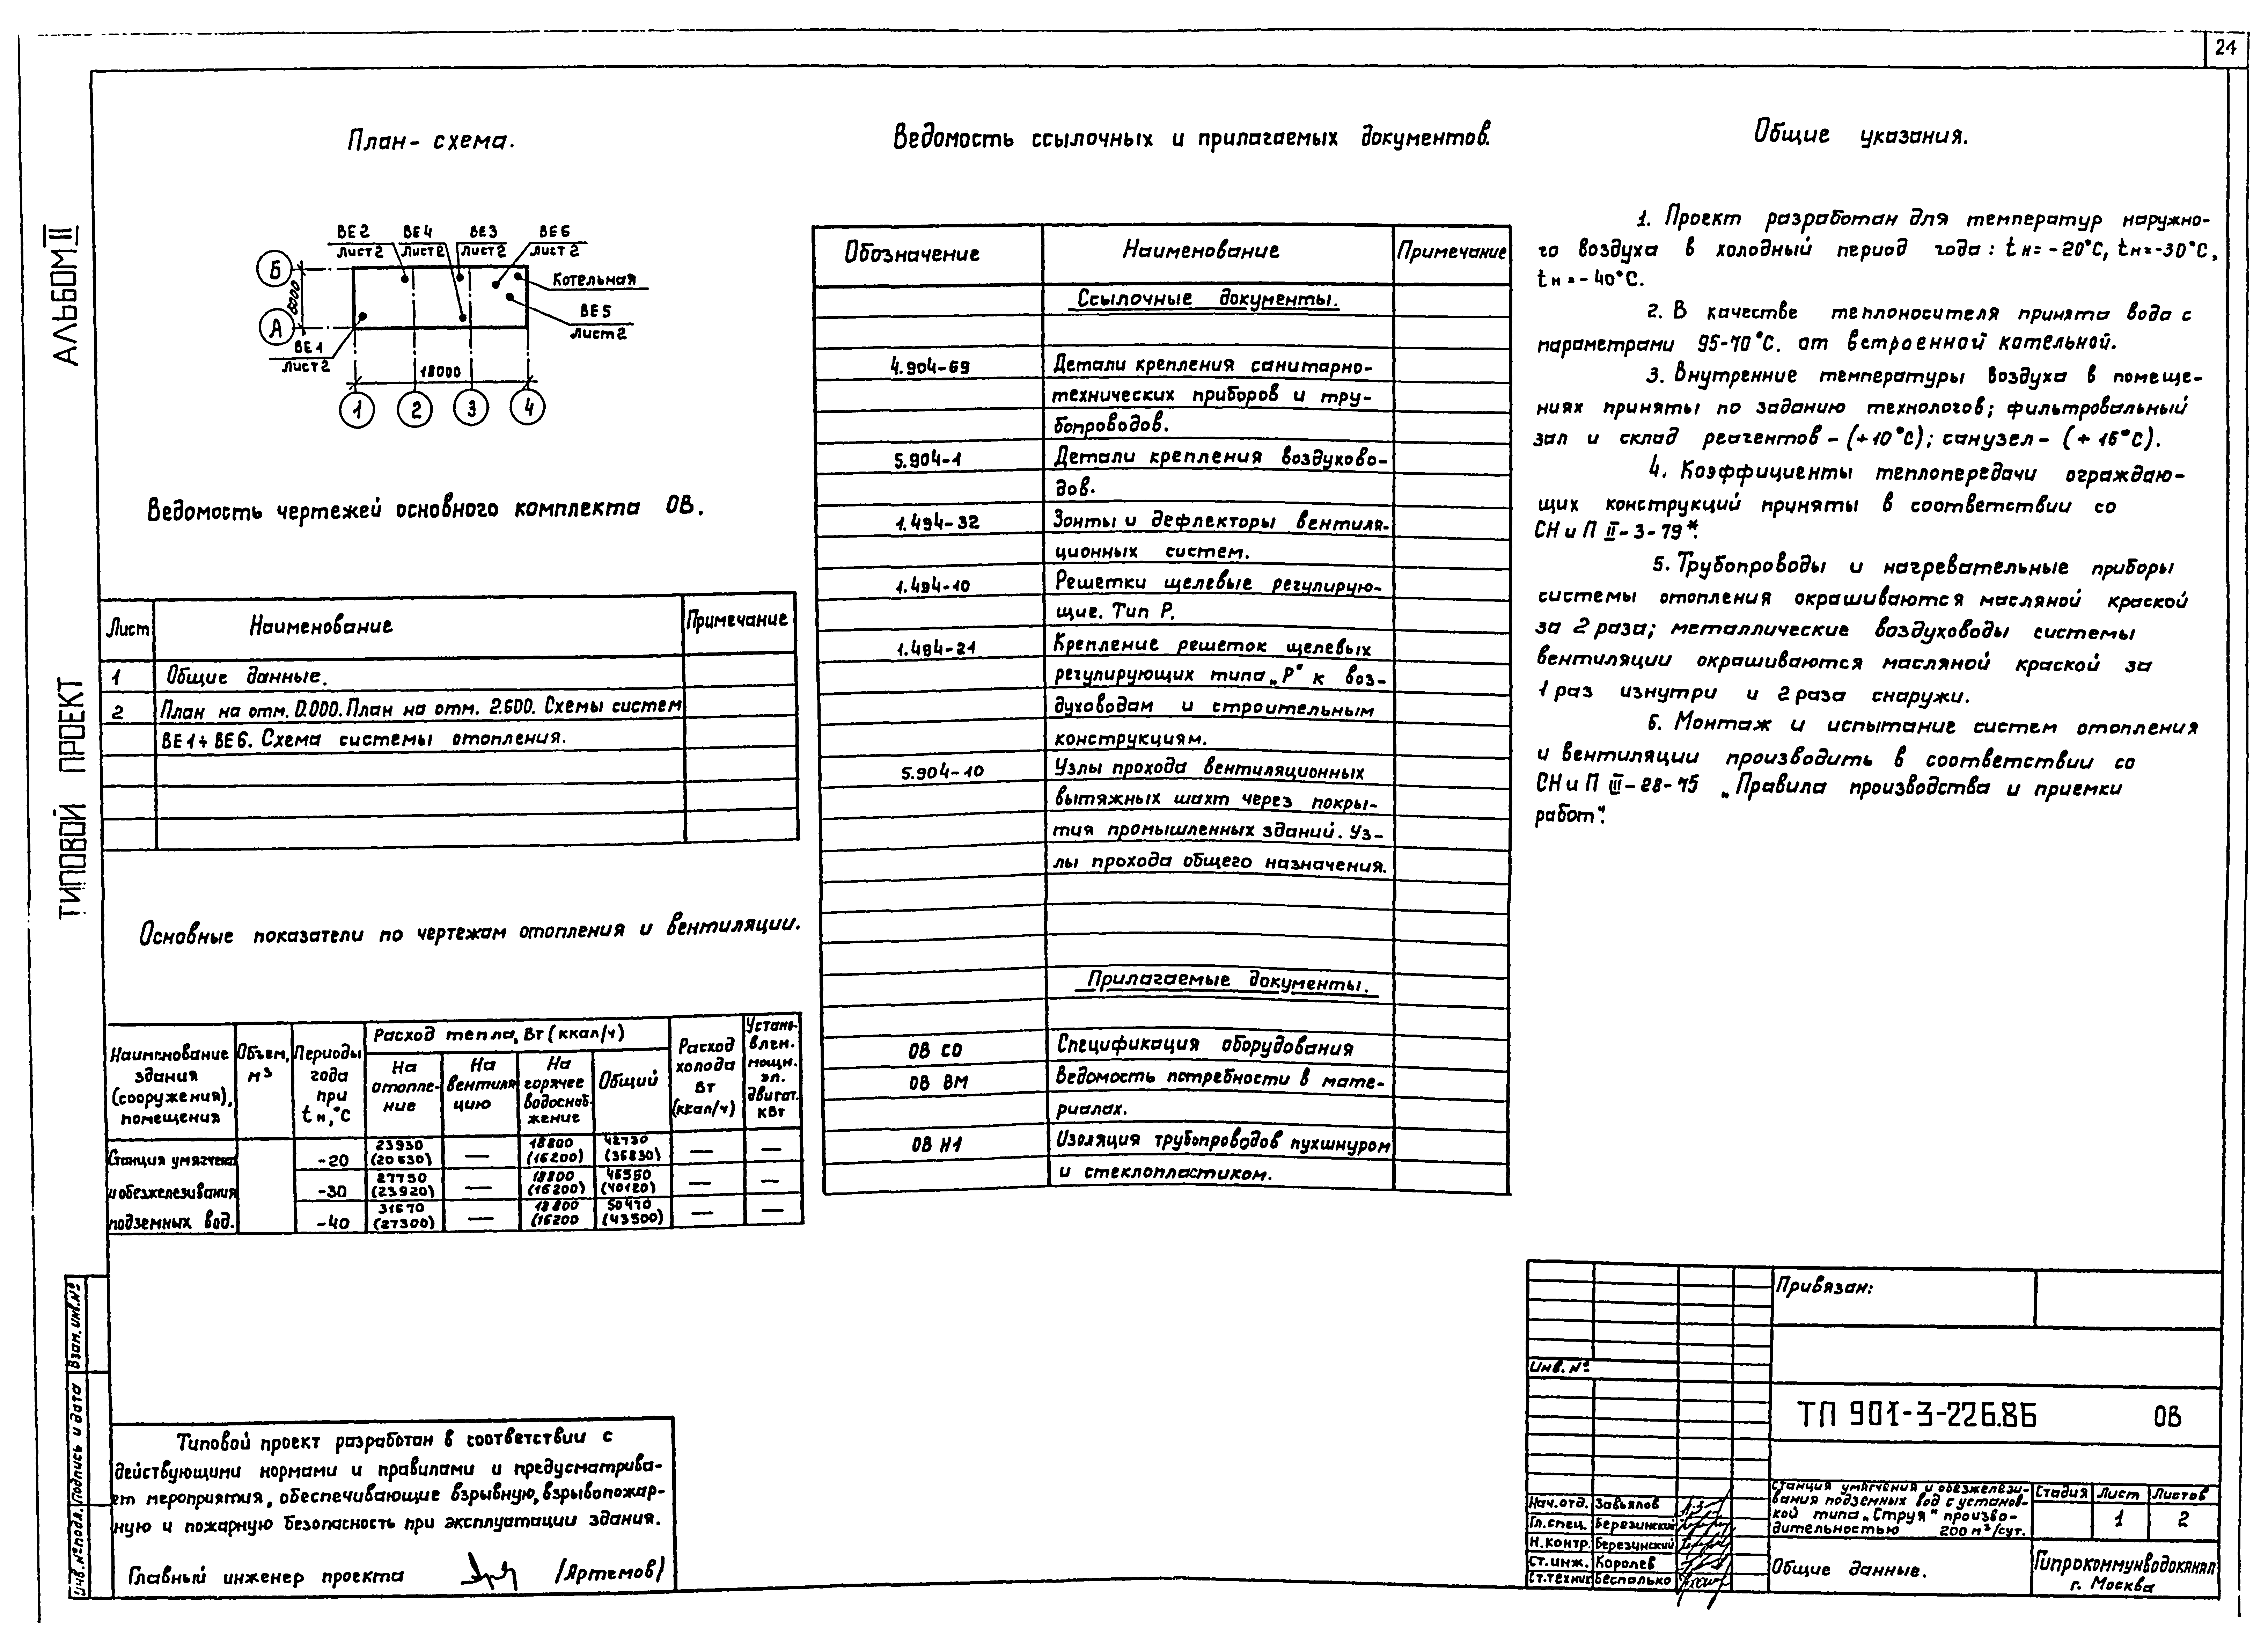 24
АЛЬБОМ II
ТИПОВОЙ ПРОЕКТ
План-схема.
ВЕ2
Лист2
ВЕ4
Лист2
ВЕ3
Лист2
ВЕ6
Лист 2
Котельная
ВЕ5
Лист2
ВЕ1
Лист2
Б
А
6000
18000
1
2
3
4
Ведомость чертежей основного комплекта ОВ.
Лист Наименование Примечание
1 Общие данные.
2 План на отм. 0.000. План на отм. 2.600. Схемы систем
ВЕ1÷ВЕ6. Схема системы отопления.
Основные показатели по чертежам отопления и вентиляции.
Наименование
здания
(сооружения),
помещения
Объем,
м³
Периоды
года
при
tн,°С
Расход тепла, Вт (ккал/ч)
На
отопле-
ние
На
вентиля
цию
На
горячее
водоснаб-
жение
Общий
Расход
холода
Вт
(ккал/ч)
Устано-
влен.
мощн.
эл.
двигат.
кВт
Станция умягчен.
и обезжелезивания
подземных вод.
-20 23930 (20630) — 18800 (16200) 42730 (36830) — —
-30 27750 (23920) — 18800 (16200) 46550 (40120) — —
-40 31670 (27300) — 18800 (16200 50470 (43500) — —
Ведомость ссылочных и прилагаемых документов.
Обозначение Наименование Примечание
Ссылочные документы.
4.904-69 Детали крепления санитарно-
технических приборов и тру-
бопроводов.
5.904-1 Детали крепления воздухово-
дов.
1.494-32 Зонты и дефлекторы вентиля-
ционных систем.
1.494-10 Решетки щелевые регулирую-
щие. Тип Р.
1.494-21 Крепление решеток щелевых
регулирующих типа „Р" к воз-
духоводам и строительным
конструкциям.
5.904-10 Узлы прохода вентиляционных
вытяжных шахт через покры-
тия промышленных зданий. Уз-
лы прохода общего назначения.
Прилагаемые документы.
ОВ СО Спецификация оборудования
ОВ ВМ Ведомость потребности в мате-
риалах.
ОВ Н1 Изоляция трубопроводов пухшнуром
и стеклопластиком.
Общие указания.
1. Проект разработан для температур наружно-
го воздуха в холодный период года: tн=-20°С, tн=-30°С,
tн=-40°С.
2. В качестве теплоносителя принята вода с
параметрами 95-70°С. от встроенной котельной.
3. Внутренние температуры воздуха в помеще-
ниях приняты по заданию технологов; фильтровальный
зал и склад реагентов - (+10°С); санузел - (+16°С).
4. Коэффициенты теплопередачи ограждаю-
щих конструкций приняты в соответствии со
СНиП II-3-79*.
5. Трубопроводы и нагревательные приборы
системы отопления окрашиваются масляной краской
за 2 раза; металлические воздуховоды системы
вентиляции окрашиваются масляной краской за
1 раз изнутри и 2 раза снаружи.
6. Монтаж и испытание систем отопления
и вентиляции производить в соответствии со
СНиП III-28-75 „Правила производства и приемки
работ".
Типовой проект разработан в соответствии с
действующими нормами и правилами и предусматрива-
ет мероприятия, обеспечивающие взрывную, взрывопожар-
ную и пожарную безопасность при эксплуатации здания.
Главный инженер проекта (Артемов)
Инв.№подл. Подпись и дата Взам.инв.№
Привязан:
Инв.№
ТП 901-3-226.86 ОВ
Нач.отд. Завьялов
Гл.спец. Березинский
Н.контр. Березинский
Ст.инж. Королев
Ст.техник Беспалько
Станция умягчения и обезжелези-
вания подземных вод с установ-
кой типа „Струя" произво-
дительностью 200 м³/сут.
Стадия Лист Листов
1 2
Общие данные.
Гипрокоммунводоканал
г. Москва